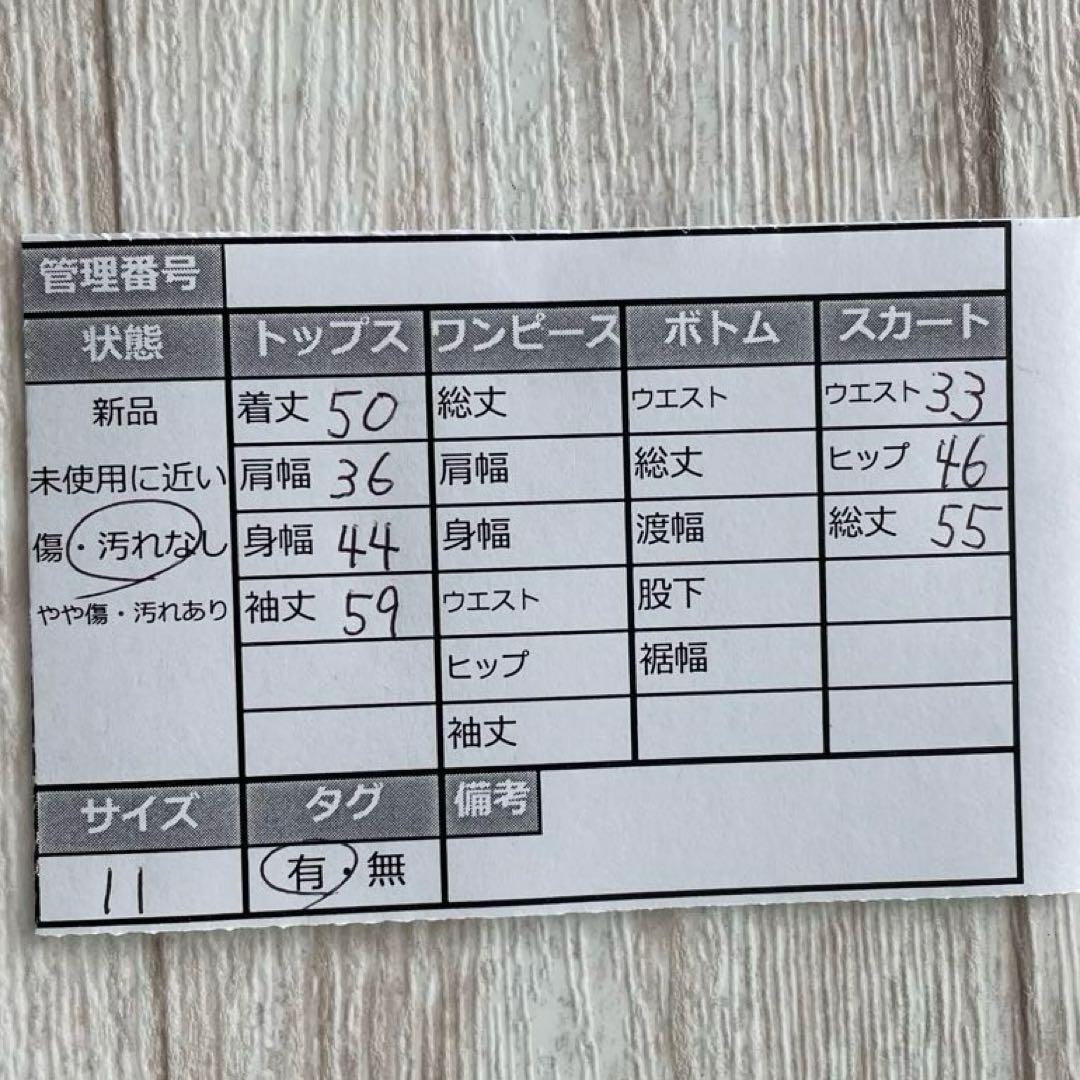 管理番号
状態 トップス ワンピース ボトム スカート
新品 着丈 50 総丈 ウエスト ウエスト 33
未使用に近い 肩幅 36 肩幅 総丈 ヒップ 46
傷・汚れなし 身幅 44 身幅 渡幅 総丈 55
やや傷・汚れあり 袖丈 59 ウエスト 股下
ヒップ 裾幅
袖丈
サイズ タグ 備考
11 有・無